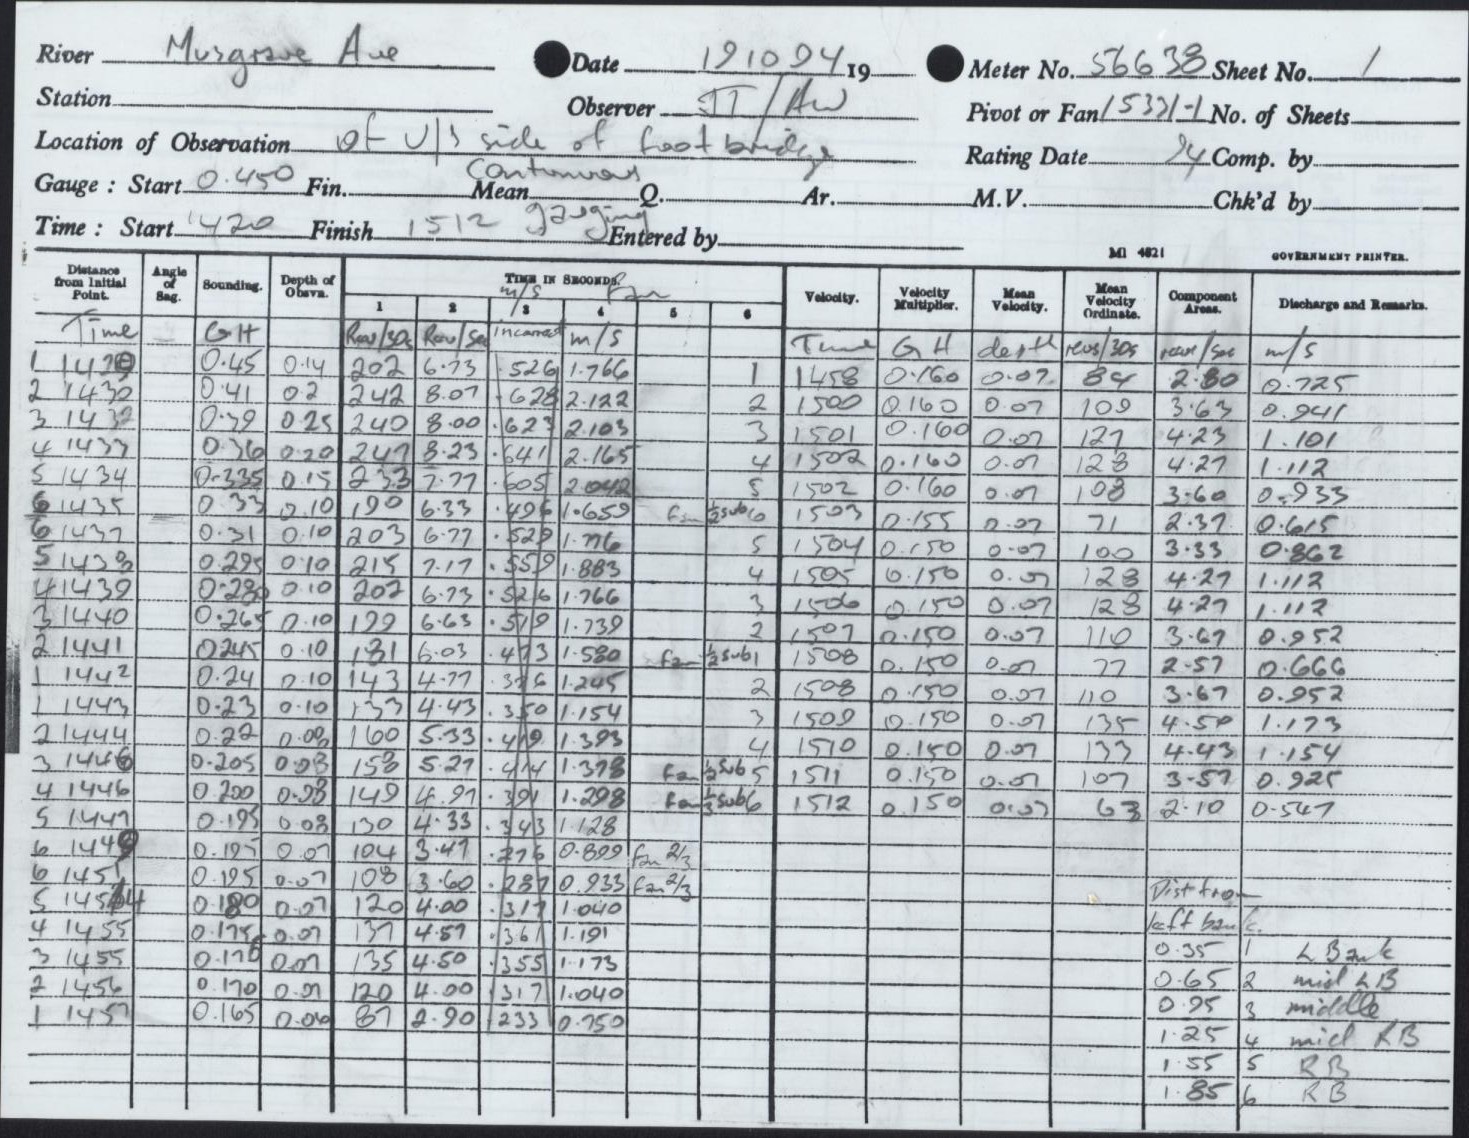 River Musgrave Ave Date 191094 19 Meter No. 56638 Sheet No. 1
Station Observer JT/AW Pivot or Fan 15331-1 No. of Sheets
Location of Observation at U/s side of foot bridge Rating Date 94 Comp. by
Gauge : Start 0.450 Fin. Mean Continuous Q. Ar. M.V. Chk'd by
Time : Start 1420 Finish 1512 gauging Entered by
MI 4821 GOVERNMENT PRINTER.
Distance from Initial Point. Angle of Sag. Sounding. Depth of Obsvn. TIME IN SECONDS. Velocity. Velocity Multiplier. Mean Velocity. Mean Velocity Ordinate. Component Areas. Discharge and Remarks.
m/s Fan
1 2 3 4 5 6
Time GH Rev/30s Rev/Sec incorrect m/s Time GH depth revs/30s revs/sec m/s
1 1429 0.45 0.14 202 6.73 .526 1.766 1 1458 0.160 0.07 84 2.80 0.725
2 1430 0.41 0.2 242 8.07 .628 2.122 2 1500 0.160 0.07 109 3.63 0.941
3 1432 0.39 0.25 240 8.00 .623 2.103 3 1501 0.160 0.07 127 4.23 1.101
4 1433 0.36 0.20 247 8.23 .641 2.165 4 1502 0.160 0.07 128 4.27 1.112
5 1434 0.335 0.15 233 7.77 .605 2.042 5 1502 0.160 0.07 108 3.60 0.933
6 1435 0.33 0.10 190 6.33 .496 1.659 fan 1/2 sub 6 1503 0.155 0.07 71 2.37 0.615
6 1437 0.31 0.10 203 6.77 .529 1.776 5 1504 0.150 0.07 100 3.33 0.862
5 1438 0.295 0.10 215 7.17 .559 1.883 4 1505 0.150 0.07 128 4.27 1.112
4 1439 0.280 0.10 202 6.73 .526 1.766 3 1506 0.150 0.07 128 4.27 1.112
3 1440 0.265 0.10 199 6.63 .519 1.739 2 1507 0.150 0.07 110 3.67 0.952
2 1441 0.245 0.10 181 6.03 .473 1.580 fan 1/2 sub 1 1508 0.150 0.07 77 2.57 0.666
1 1442 0.24 0.10 143 4.77 .376 1.245 2 1508 0.150 0.07 110 3.67 0.952
1 1443 0.23 0.10 133 4.43 .350 1.154 3 1509 0.150 0.07 135 4.50 1.173
2 1444 0.22 0.09 160 5.33 .419 1.393 4 1510 0.150 0.07 133 4.43 1.154
3 1446 0.205 0.08 158 5.27 .414 1.378 fan 1/2 sub 5 1511 0.150 0.07 107 3.57 0.925
4 1446 0.200 0.08 149 4.97 .391 1.298 fan 1/3 sub 6 1512 0.150 0.07 63 2.10 0.547
5 1447 0.195 0.08 130 4.33 .343 1.128
6 1449 0.195 0.07 104 3.47 .276 0.899 fan 2/3
6 1451 0.195 0.07 108 3.60 .287 0.933 fan 2/3 Dist from
5 1454 0.180 0.07 120 4.00 .317 1.040 left bank.
4 1455 0.175 0.07 137 4.57 .361 1.191 0.35 1 L Bank
3 1455 0.170 0.07 135 4.50 .355 1.173 0.65 2 mid LB
2 1456 0.170 0.07 120 4.00 .317 1.040 0.95 3 middle
1 1457 0.165 0.06 87 2.90 .233 0.750 1.25 4 mid RB
1.55 5 RB
1.85 6 RB